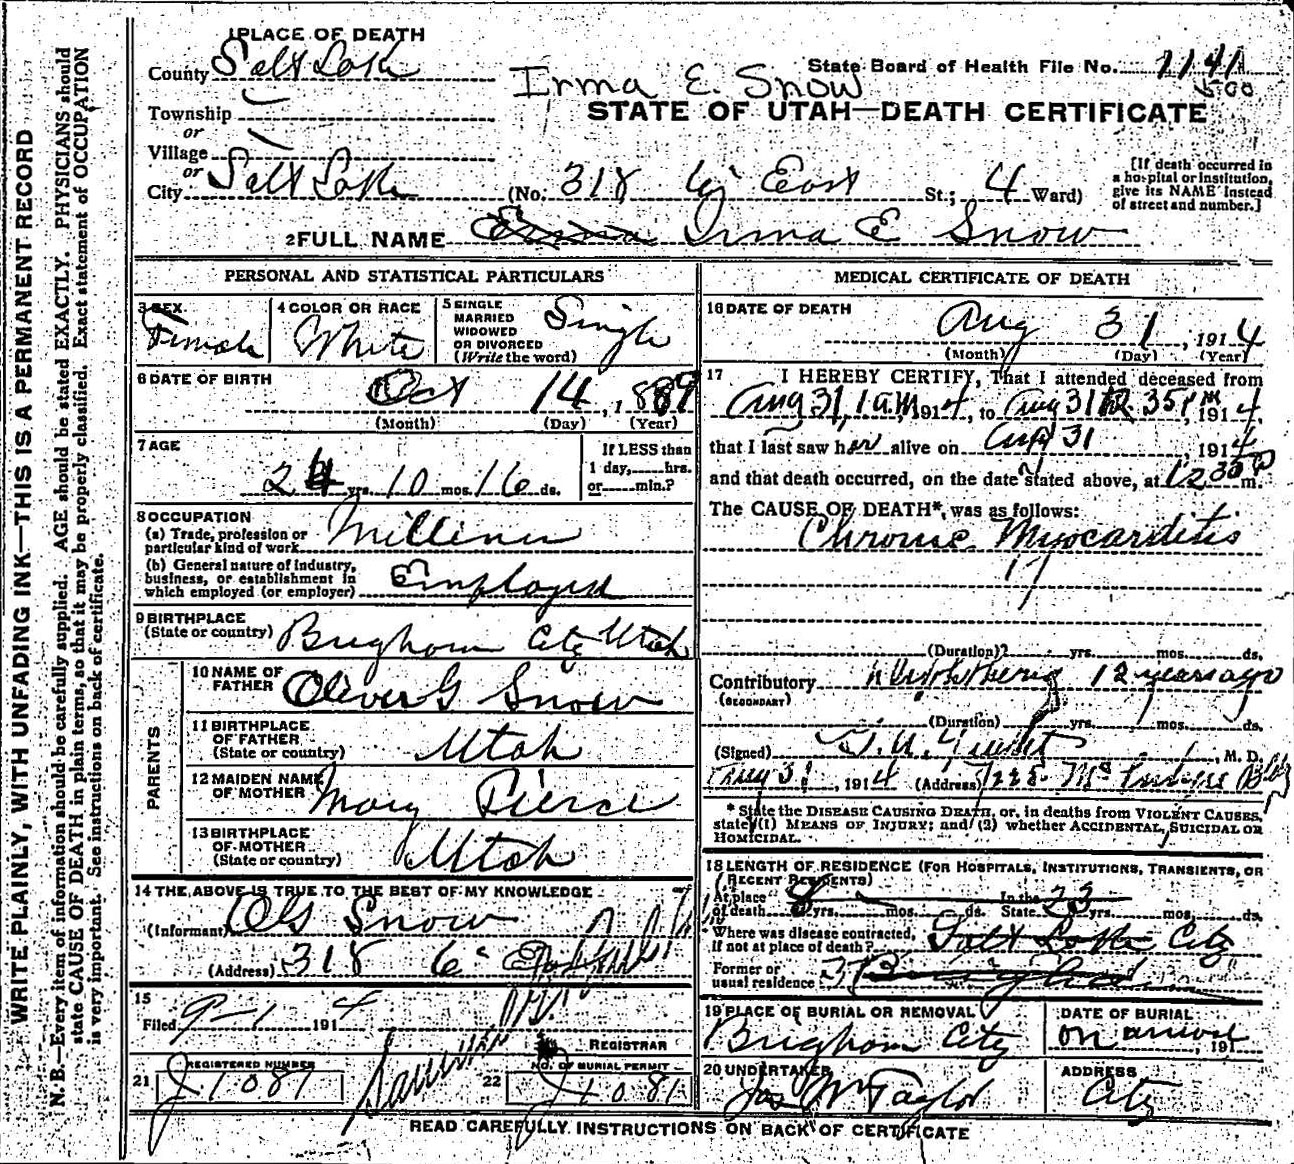 WRITE PLAINLY, WITH UNFADING INK—THIS IS A PERMANENT RECORD
N. B.—Every item of information should be carefully supplied. AGE should be stated EXACTLY. PHYSICIANS should
state CAUSE OF DEATH in plain terms, so that it may be properly classified. Exact statement of OCCUPATION
is very important. See instructions on back of certificate.
1 PLACE OF DEATH
County Salt Lake
Irma E. Snow
State Board of Health File No. 1141
500
STATE OF UTAH—DEATH CERTIFICATE
Township
or
Village
or
City Salt Lake (No. 318 6" East St.; 4 Ward)
[If death occurred in
a hospital or institution,
give its NAME instead
of street and number.]
2 FULL NAME Irma E Snow
PERSONAL AND STATISTICAL PARTICULARS
3 SEX
Female
4 COLOR OR RACE
White
5 SINGLE
MARRIED
WIDOWED
OR DIVORCED
(Write the word)
Single
6 DATE OF BIRTH
Oct 14, 1889
(Month) (Day) (Year)
7 AGE
24 yrs. 10 mos. 16 ds.
If LESS than
1 day, hrs.
or min.?
8 OCCUPATION
(a) Trade, profession or
particular kind of work Milliner
(b) General nature of industry,
business, or establishment in
which employed (or employer) Employed
9 BIRTHPLACE
(State or country) Brigham City Utah
PARENTS
10 NAME OF
FATHER Oliver G Snow
11 BIRTHPLACE
OF FATHER
(State or country) Utah
12 MAIDEN NAME
OF MOTHER Mary Pierce
13 BIRTHPLACE
OF MOTHER
(State or country) Utah
14 THE ABOVE IS TRUE TO THE BEST OF MY KNOWLEDGE
(Informant) OG Snow
(Address) 318 6" E
15
Filed 9-1 1914
REGISTRAR
21 REGISTERED NUMBER
J 1081
22 NO. OF BURIAL PERMIT
J 1081
MEDICAL CERTIFICATE OF DEATH
16 DATE OF DEATH
Aug 31, 1914
(Month) (Day) (Year)
17 I HEREBY CERTIFY, That I attended deceased from
Aug 31, 1 a.m 1914, to Aug 31 12 35 P M, 1914,
that I last saw her alive on Aug 31, 1914
and that death occurred, on the date stated above, at 12 35 P m.
The CAUSE OF DEATH*, was as follows:
Chronic Myocarditis
(Duration)? yrs. mos. ds.
Contributory 12 years ago
(SECONDARY)
(Duration) yrs. mos. ds.
(Signed) M. D.
Aug 31, 1914 (Address) Bldg
* State the DISEASE CAUSING DEATH, or, in deaths from VIOLENT CAUSES,
state (1) MEANS OF INJURY; and (2) whether ACCIDENTAL, SUICIDAL OR
HOMICIDAL.
18 LENGTH OF RESIDENCE (FOR HOSPITALS, INSTITUTIONS, TRANSIENTS, OR
RECENT RESIDENTS)
At place
of death 8 yrs. mos. ds. In the
State 23 yrs. mos. ds.
Where was disease contracted,
if not at place of death? Salt Lake City
Former or
usual residence
19 PLACE OF BURIAL OR REMOVAL
Brigham City
DATE OF BURIAL
on arrival, 191
20 UNDERTAKER
Jos Wm Taylor
ADDRESS
City
READ CAREFULLY INSTRUCTIONS ON BACK OF CERTIFICATE